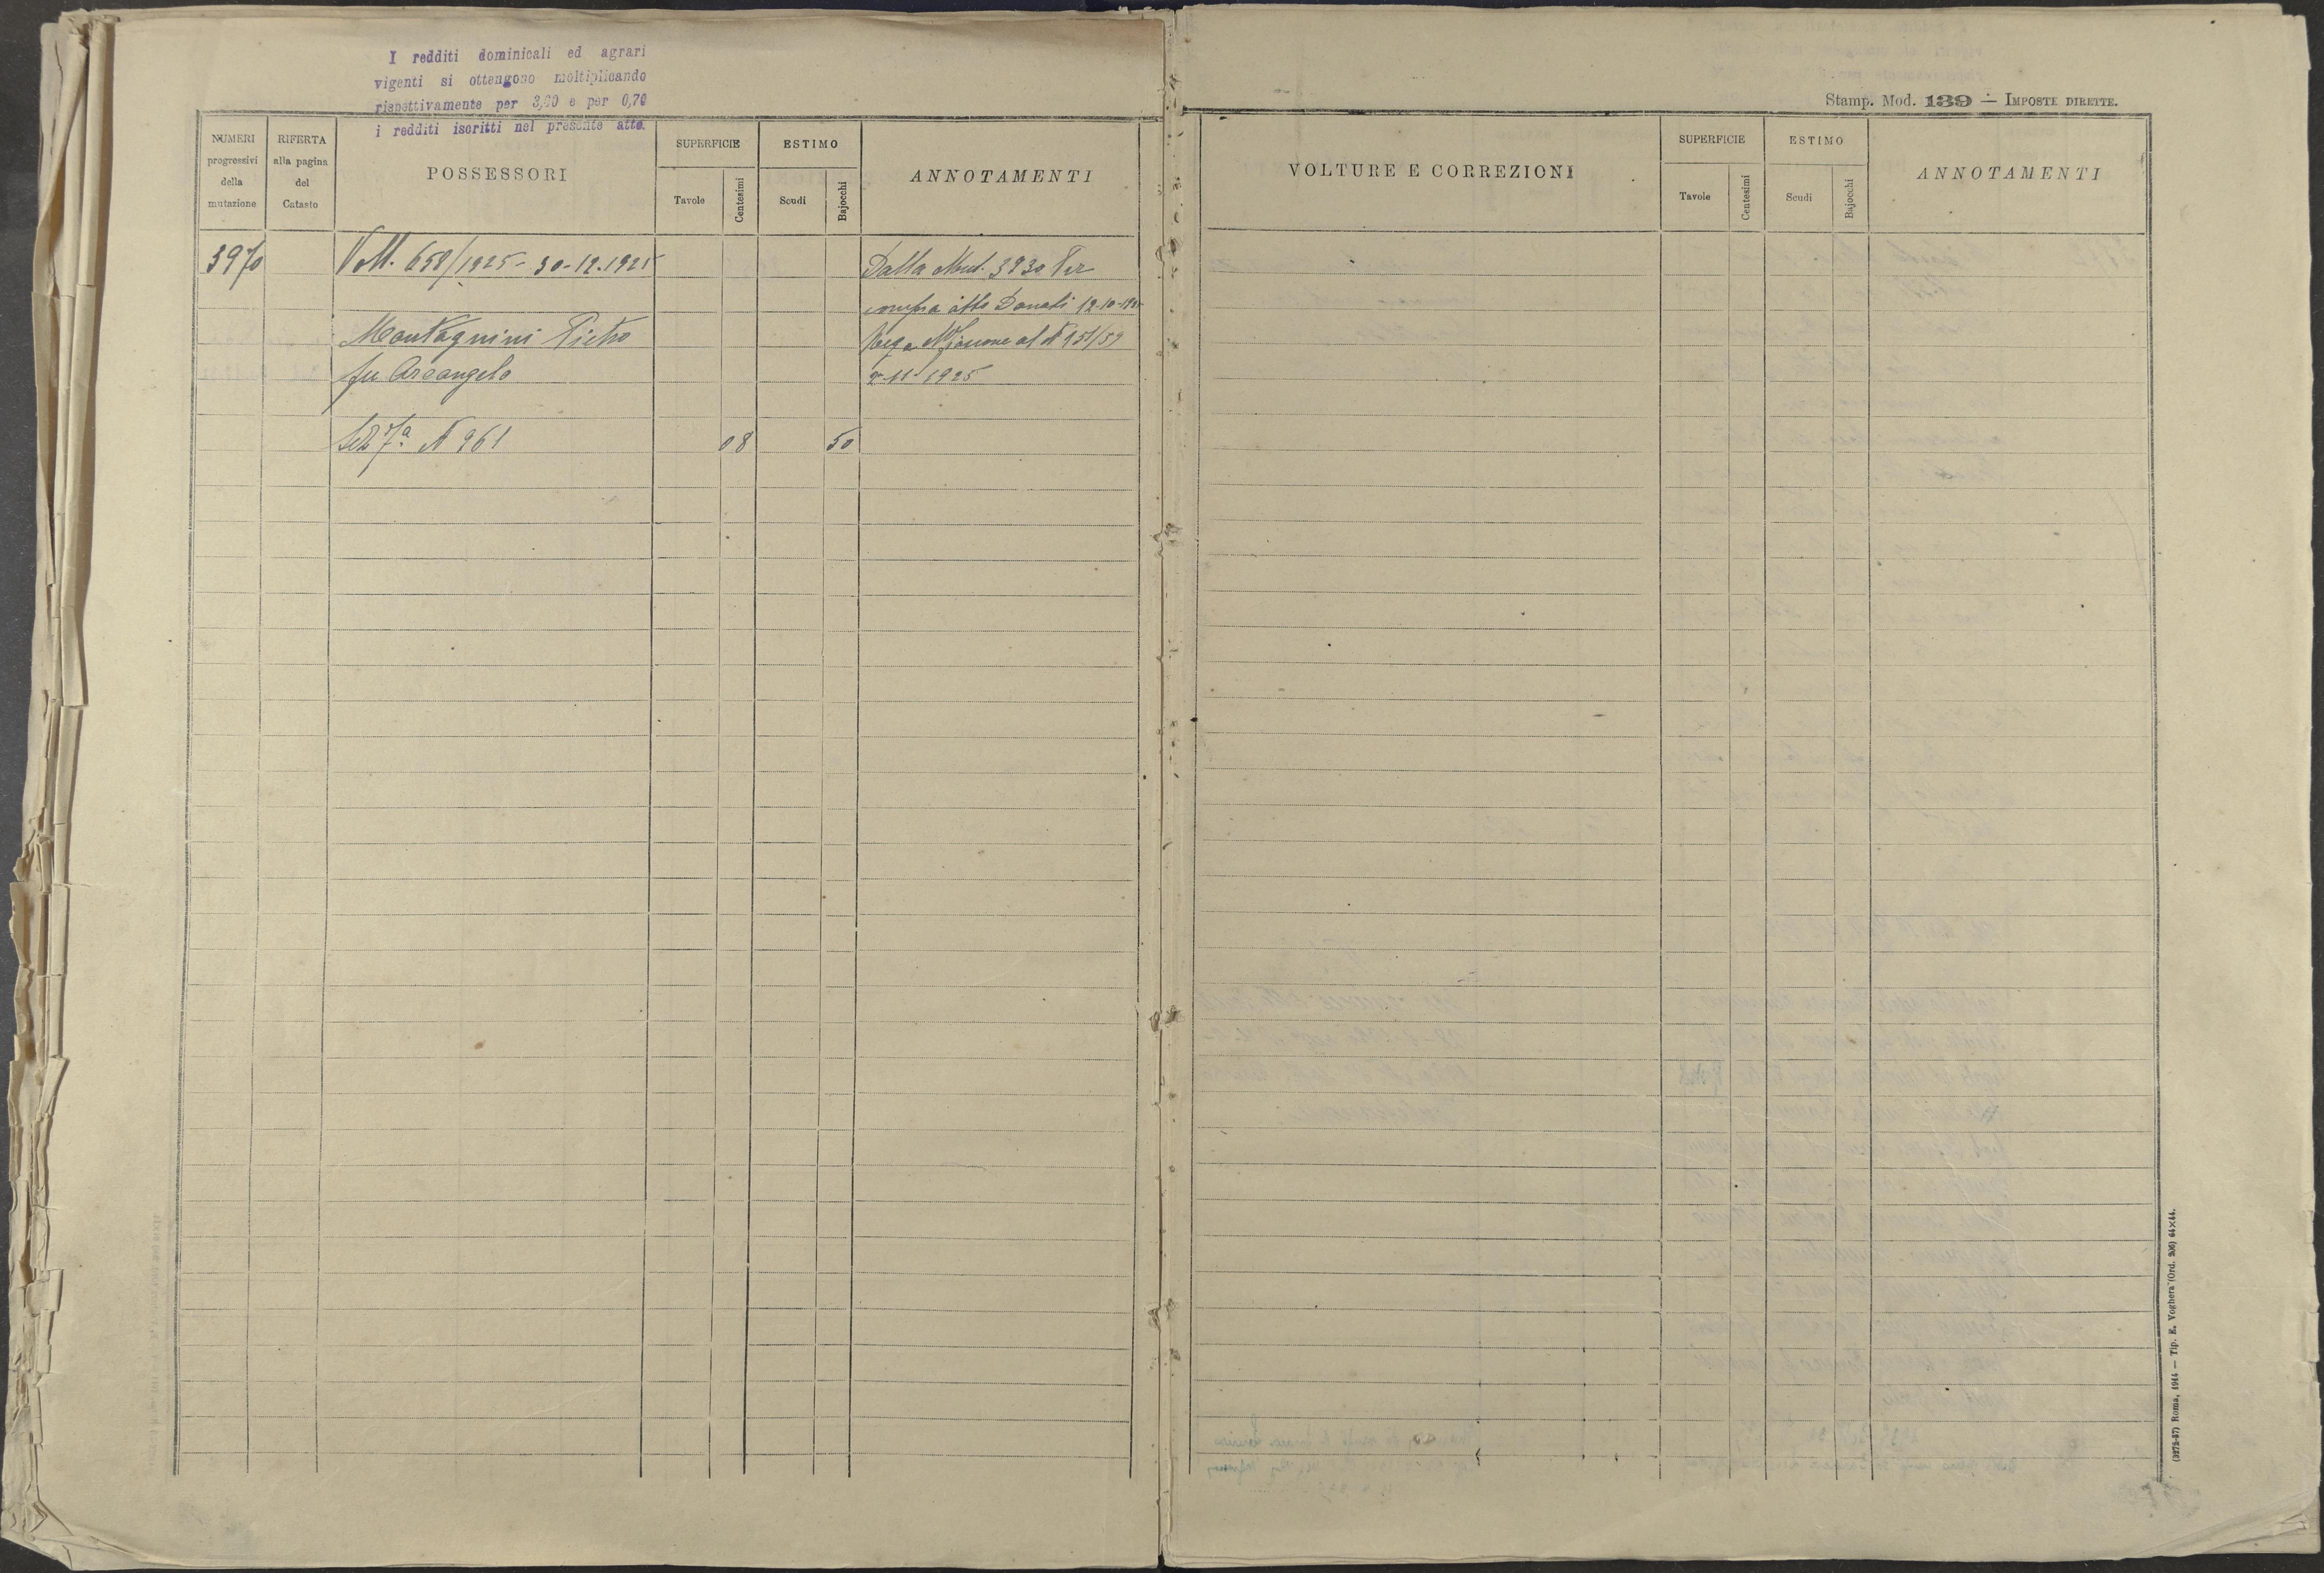 I redditi dominicali ed agrari
vigenti si ottengono moltiplicando
rispettivamente per 3,00 e per 0,70
i redditi iscritti nel presente atto.
NUMERI progressivi della mutazione
RIFERTA alla pagina del Catasto
POSSESSORI
SUPERFICIE
Tavole
Centesimi
ESTIMO
Scudi
Bajocchi
ANNOTAMENTI
3970
Volt. 658/1925 - 30-12-1925
Dalla Mut. 3930 Per
compra atto Donati 12-10-1925
Montagnini Pietro
fu Arcangelo
al N 951/59
2-11-1925
Sez 7ª N 961
08
50
Stamp. Mod. 139 — IMPOSTE DIRETTE.
VOLTURE E CORREZIONI
SUPERFICIE
Tavole
Centesimi
ESTIMO
Scudi
Bajocchi
ANNOTAMENTI
(3272-57) Roma, 1914 — Tip. E. Voghera (Ord. 206) 64×44.